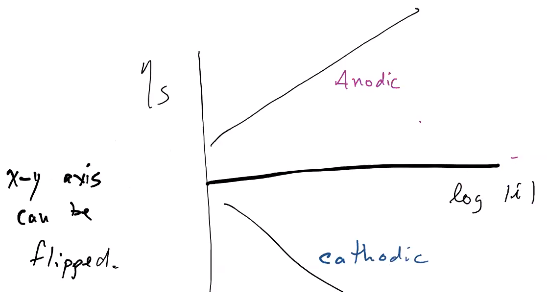 ηs
Anodic
x-y axis
can be
flipped.
log |i|
cathodic